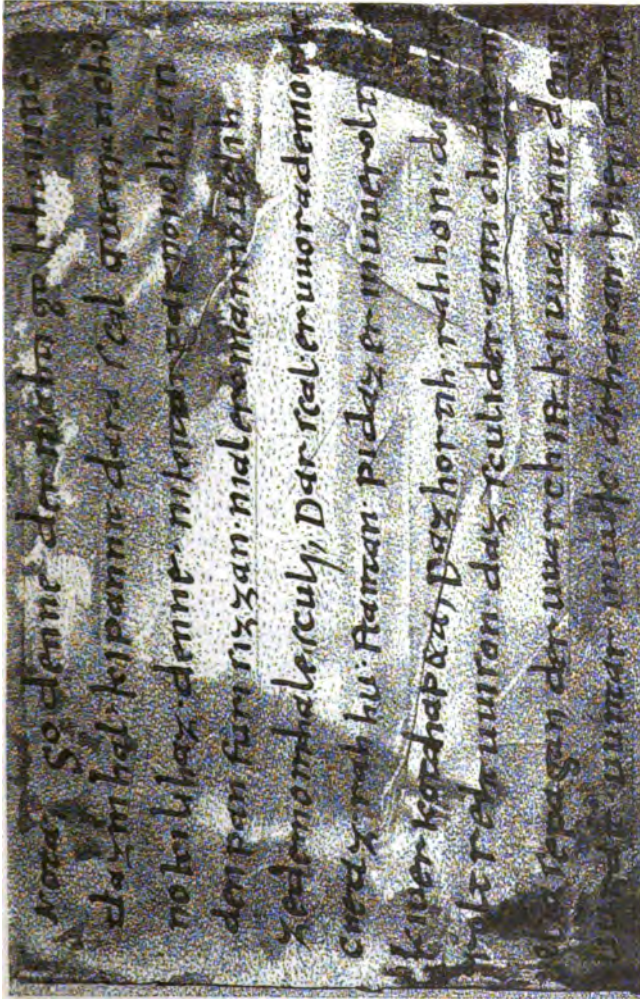 So denne der mahtigo khuninc
daz mahal kipannit dara scal queman
no kilihaz. denne ni kitar parno nohhan
den pan furi sizzan. ni allero manno uuelih
ze demo mahale sculi, Dar scal er uora demo
rahhu stantan pi daz er in uuerolti
hapeta, Daz hort ih rahhon dia
uuison daz sculi der anti christo
pagan der uuarch ist kiuuafanit denne
untar in uuic arhapan.